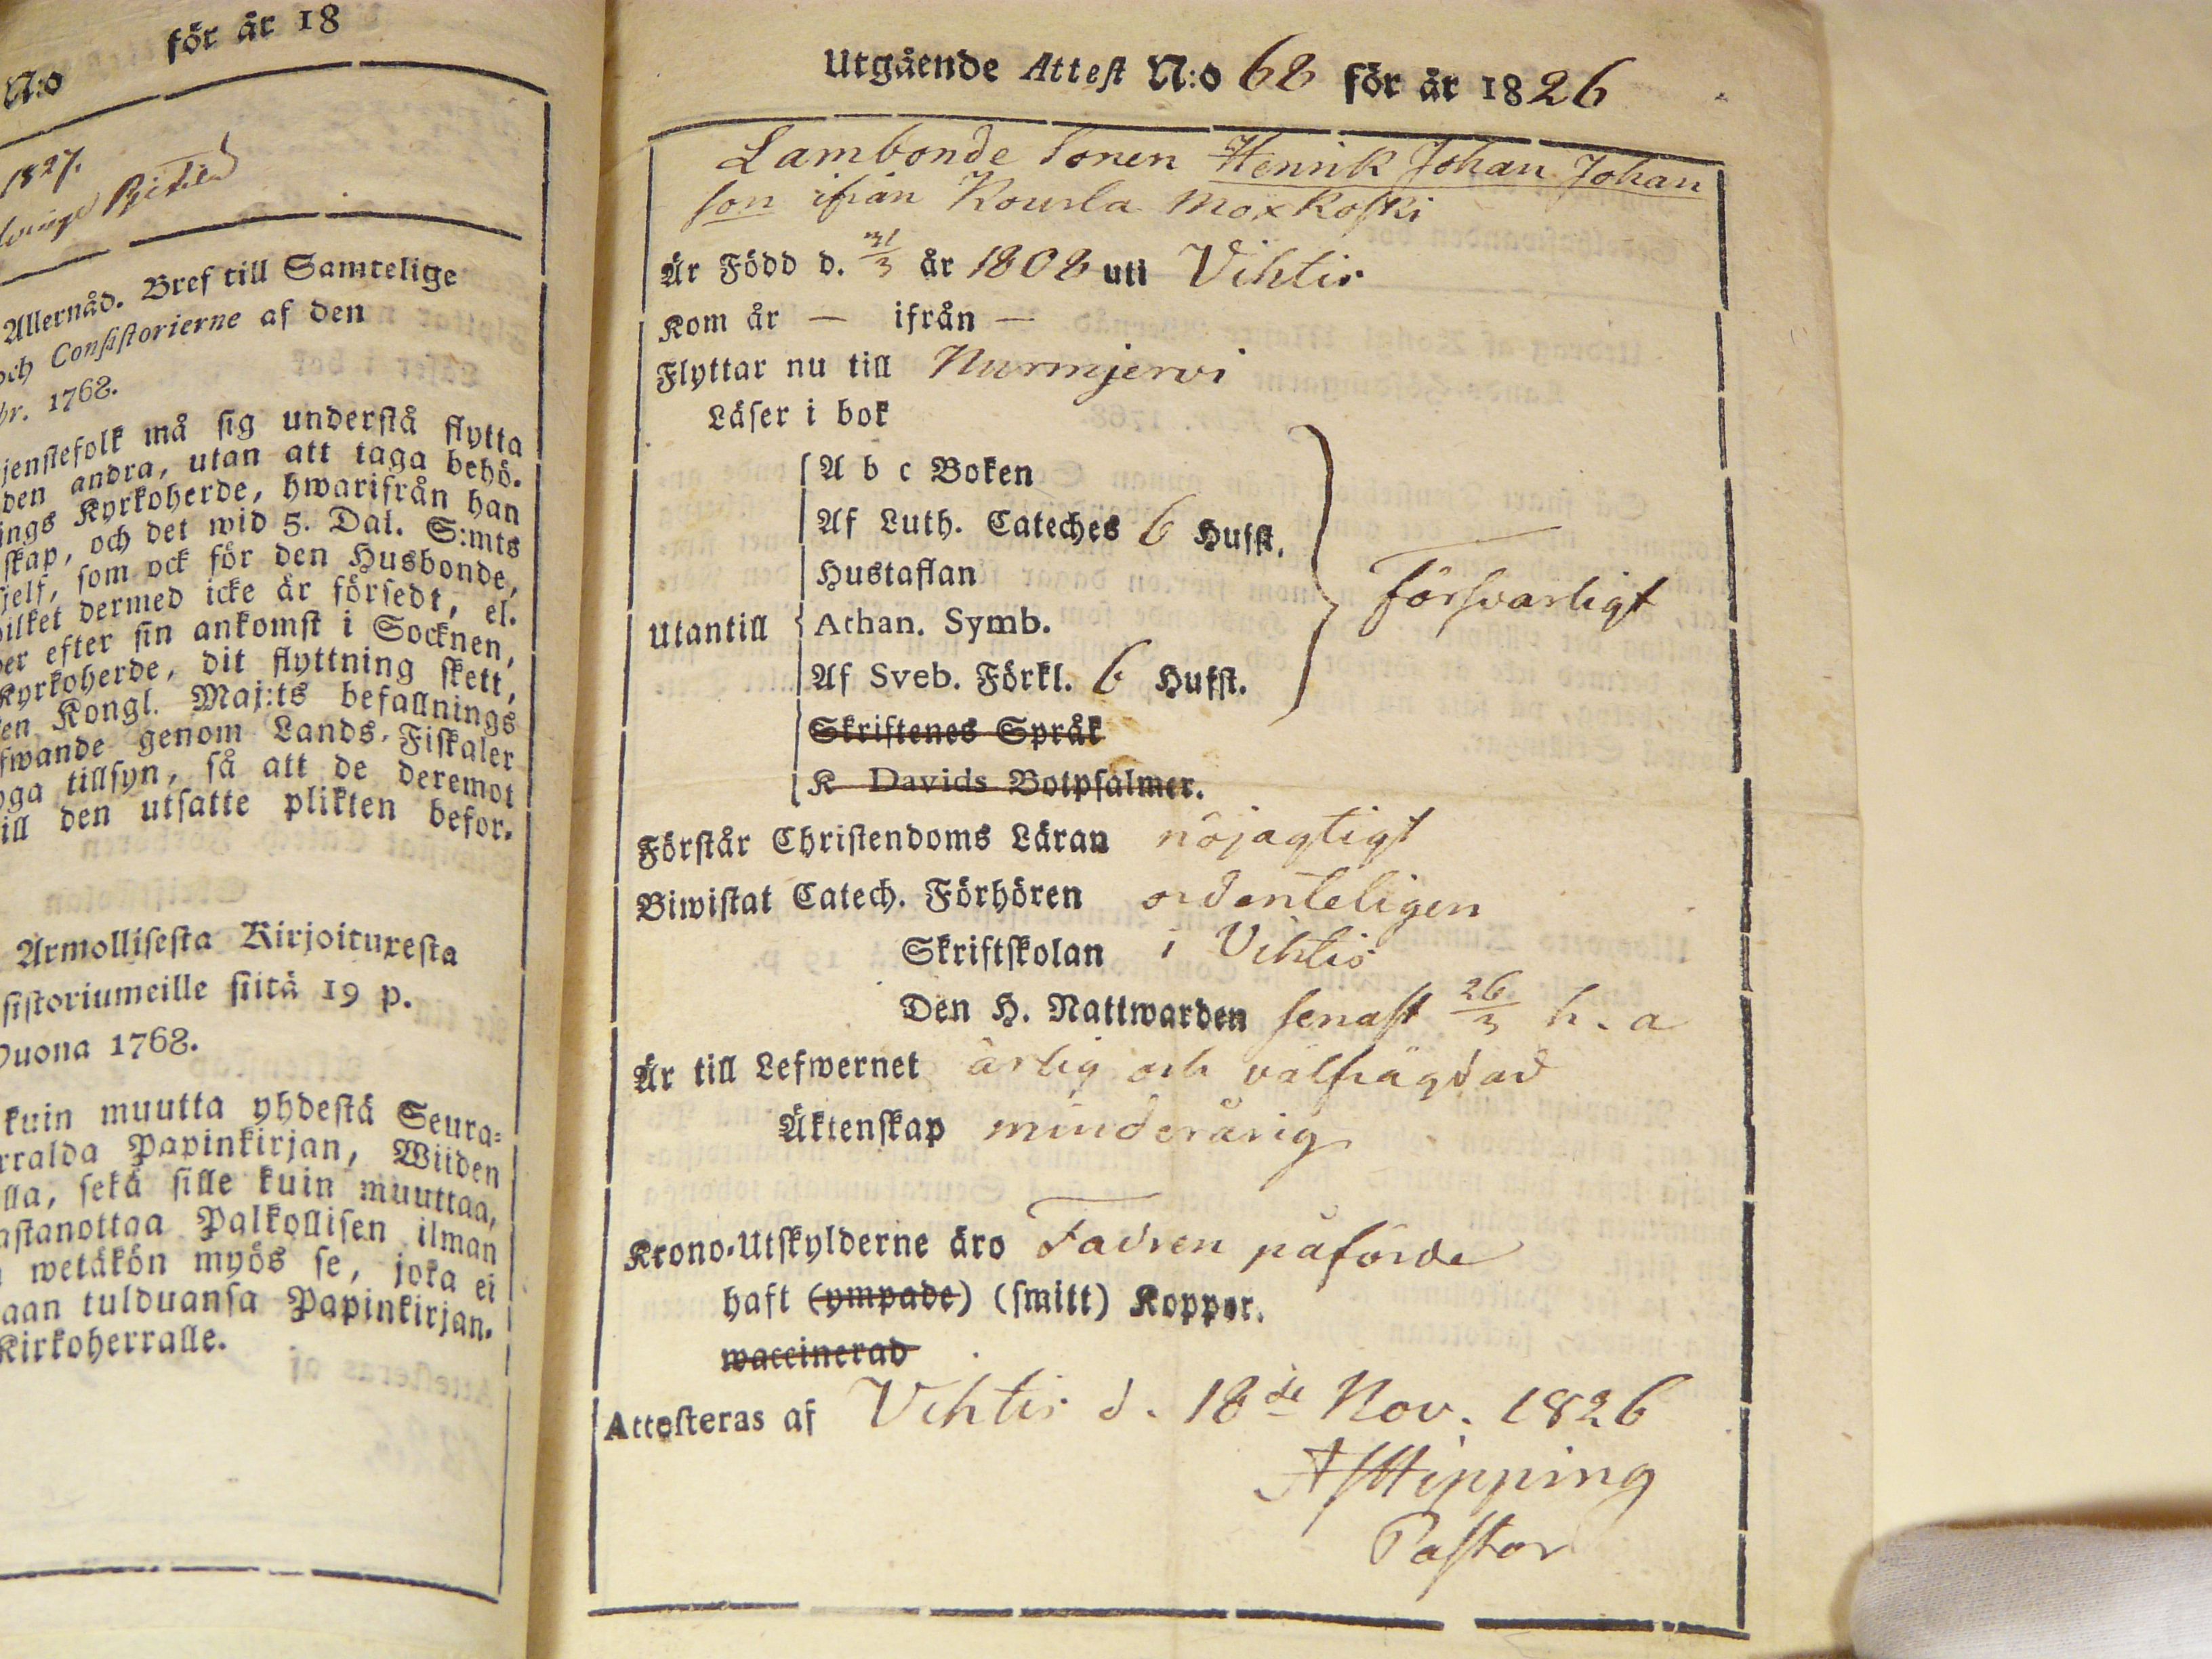 för år 18
N:o
1827.
Allernåd. Bref till Samtelige
och Consistorierne af den
br. 1768.
jenstefolk må sig understå flytta
den andra, utan att taga behö-
ings Kyrkoherde, hwarifrån han
skap, och det wid 5. Dal. S:mts
jelf, som ock för den Husbonde,
ilket dermed icke är försedt, el-
er efter sin ankomst i Socknen,
Kyrkoherde, dit flyttning skett,
en Kongl. Maj:ts befallnings
fwande genom Lands-Fiskaler
oga tillsyn, så att de deremot
ill den utsatte plikten befor-
Armollisesta Kirjoituxesta
sistoriumeille siitä 19 p.
Vuona 1768.
kuin muutta yhdestä Seura-
rralda Papinkirjan, Wiiden
lla, sekä sille kuin muuttaa,
astanottaa Palkollisen ilman
wetäkön myös se, joka ei
aan tulduansa Papinkirjan,
Kirkoherralle.
Utgående Attest N:o 68 för år 1826
Lambonde Sonen Henrik Johan Johan
son ifrån Kourla Moxkoski
Är Född d. 31/3 år 1808 uti Vihtis
Kom år — ifrån —
Flyttar nu till Nurmjervi
Läser i bok
Utantill
A b c Boken
Af Luth. Cateches 6 Hufst.
Hustaflan
Athan. Symb.
Af Sveb. Förkl. 6 Hufst.
Skriftenes Språk
K Davids Botpsalmer.
försvarligt
Förstår Christendoms Läran nöjagtigt
Biwistat Catech. Förhören ordenteligen
Skriftskolan i Vihtis
Den H. Nattwarden senast 26/3 h. a
Är till Lefwernet ärlig och välfrägdad
Äktenskap minderårig
Krono-Utskylderne äro Fadren påförde
haft (ympade) (smitt) Koppor.
waccinerad
Attesteras af Vihtis d. 18de Nov. 1826
AJHipping
Pastor